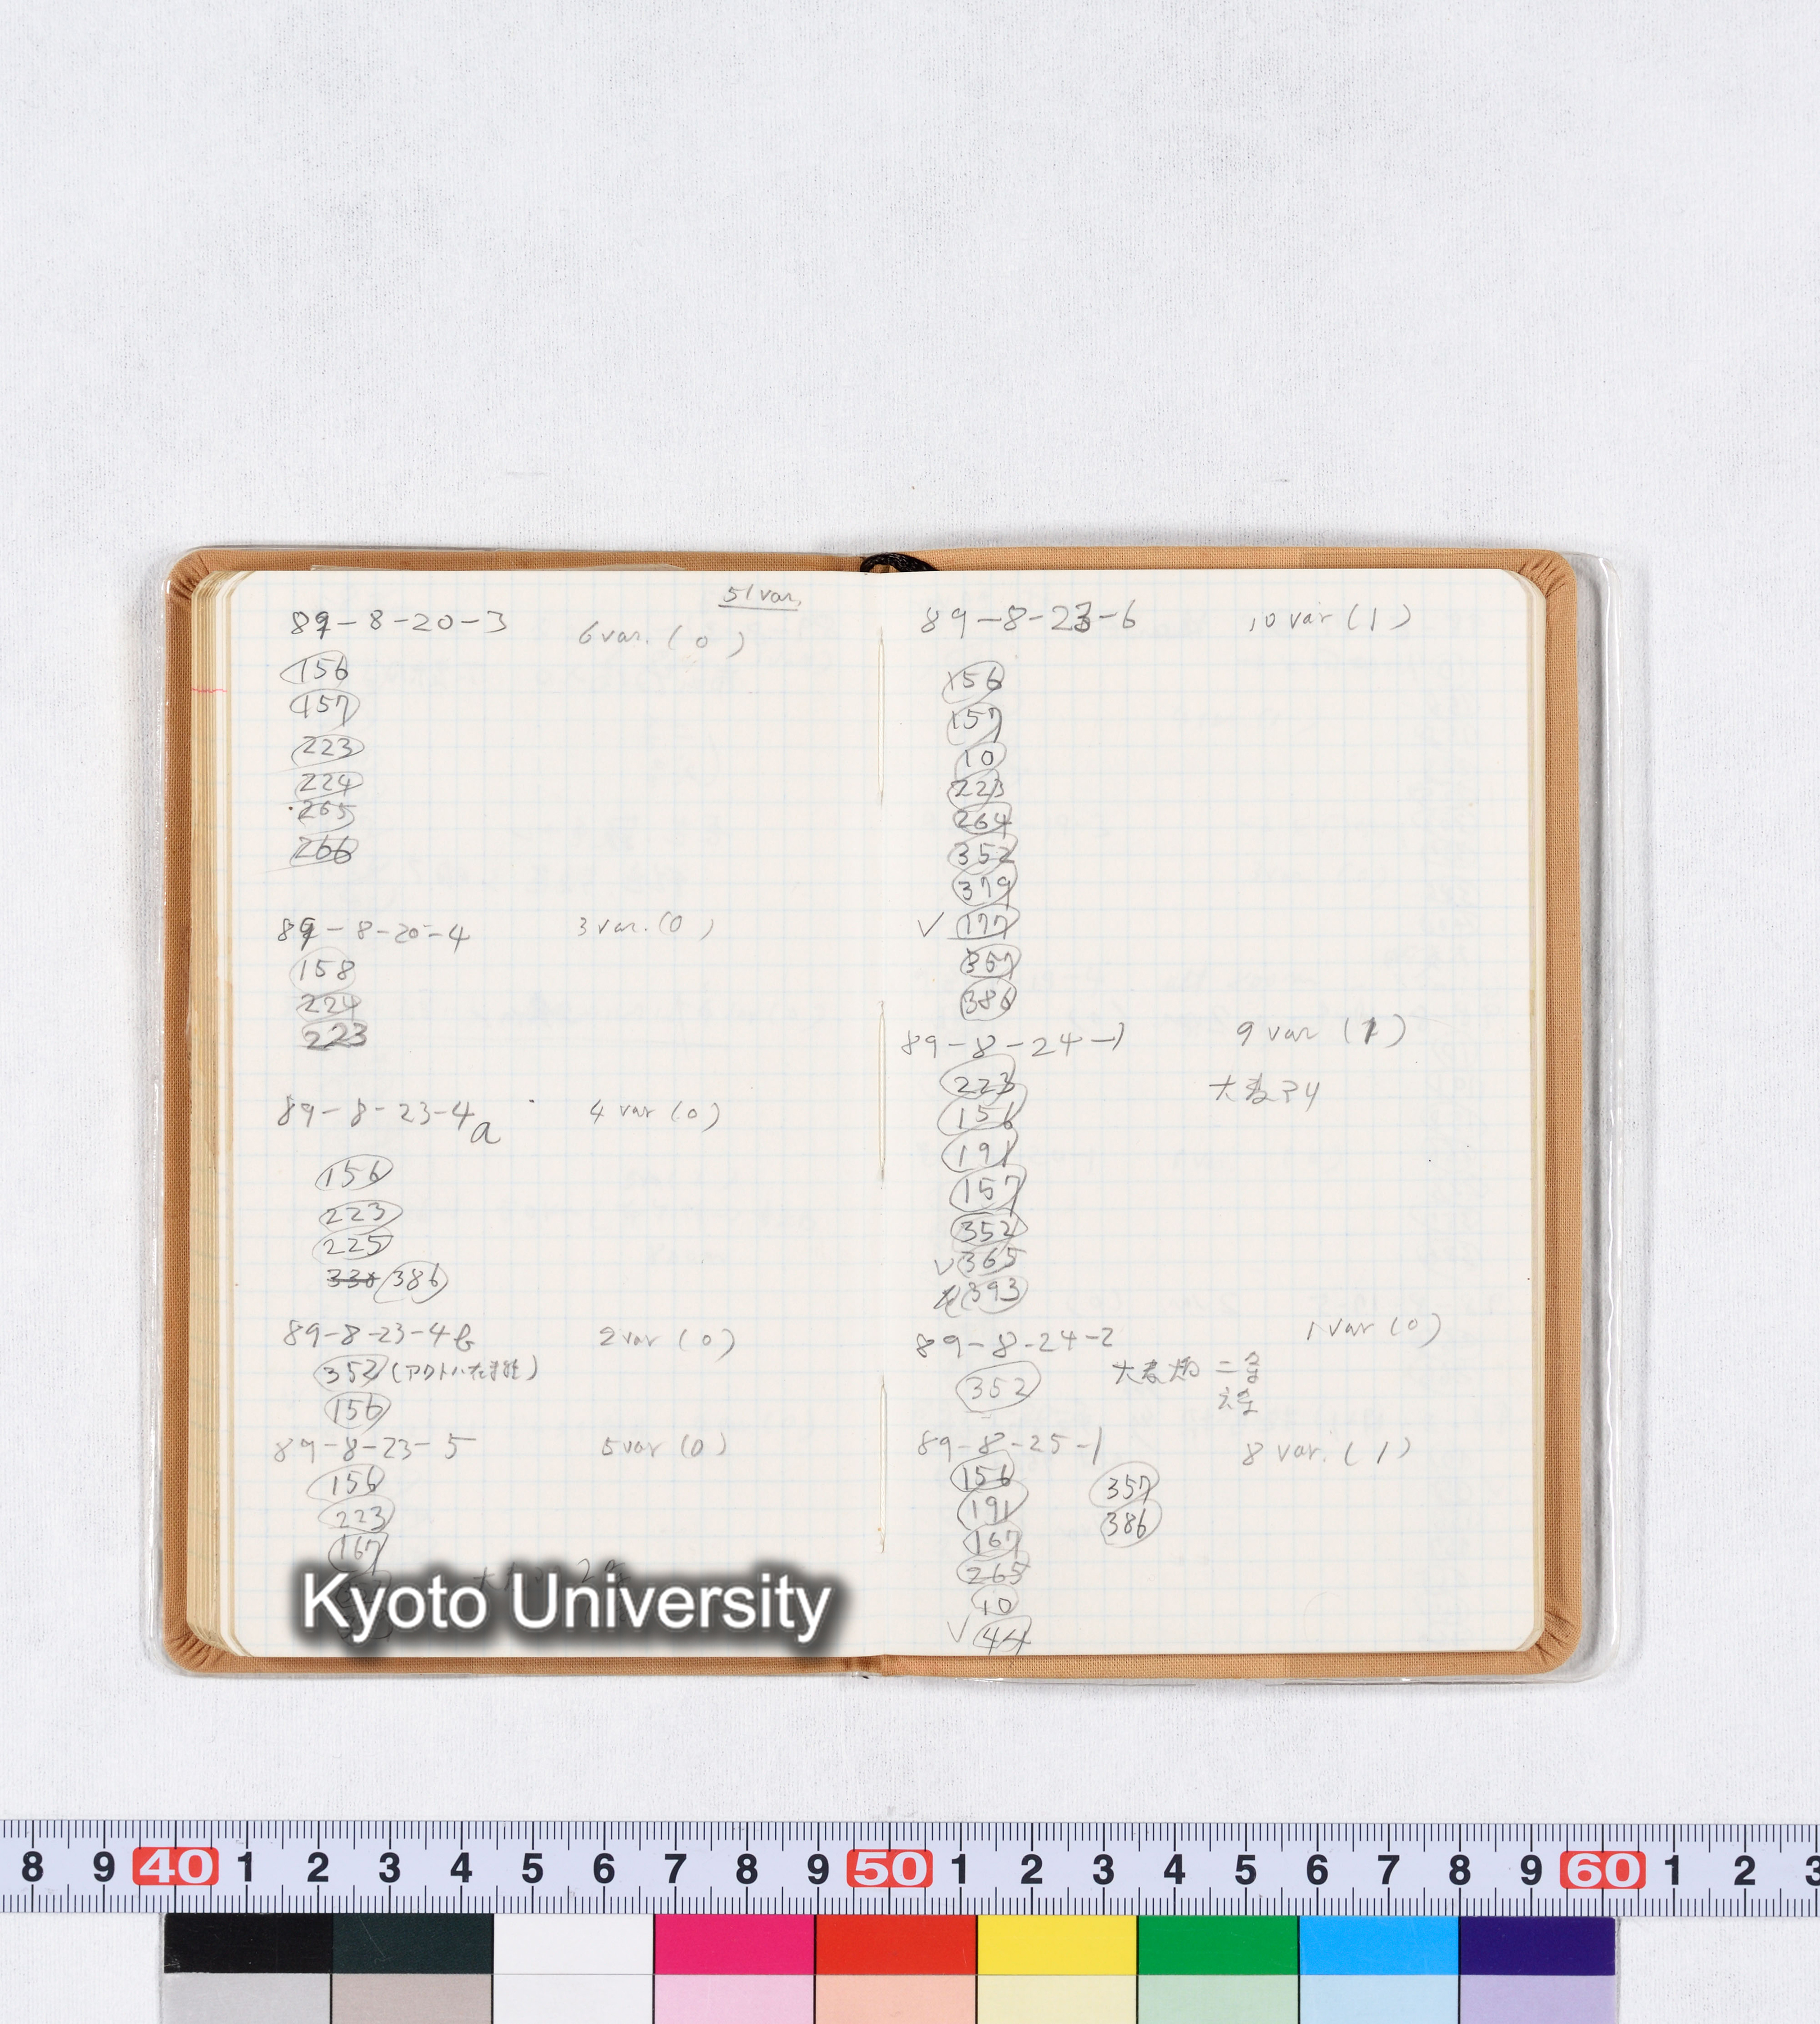 51 var.
89-8-20-3 6 var. (0)
156
157
223
224
265
266
89-8-20-4 3 var. (0)
158
224
223
89-8-23-4a 4 var (0)
156
223
225
338 386
89-8-23-4b 2 var (0)
352
156
89-8-23-5 5 var (0)
156
223
167
89-8-23-6 10 var (1)
156
157
10
223
264
352
379
✓ 177
357
386
89-8-24-1 9 var (1)
223
156
191
157
352
✓ 365
393
89-8-24-2 1 var (0)
352 大麦畑 二条
六条
89-8-25-1 8 var. (1)
156 357
191 386
167
265
10
✓ 44
Kyoto University
8 9 40 1 2 3 4 5 6 7 8 9 50 1 2 3 4 5 6 7 8 9 60 1 2 3